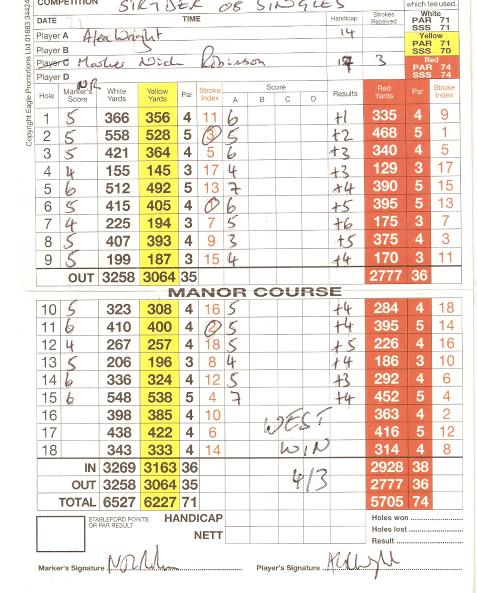 COMPETITION which tee used.
DATE TIME Handicap Strokes Received White PAR 71 SSS 71
Player A Alex Wright 14 Yellow PAR 71 SSS 70
Player B
Player C Marker Nick Robinson 17 3 Red PAR 74 SSS 74
Player D
NR
Hole Marker's Score White Yards Yellow Yards Par Stroke Index Score A B C D Results Red Yards Par Stroke Index
1 5 366 356 4 11 6 +1 335 4 9
2 5 558 528 5 3 5 +2 468 5 1
3 5 421 364 4 5 6 +3 340 4 5
4 4 155 145 3 17 4 +3 129 3 17
5 6 512 492 5 13 7 +4 390 5 15
6 5 415 405 4 1 6 +5 395 5 13
7 4 225 194 3 7 5 +6 175 3 7
8 5 407 393 4 9 3 +5 375 4 3
9 5 199 187 3 15 4 +4 170 3 11
OUT 3258 3064 35 2777 36
MANOR COURSE
10 5 323 308 4 16 5 +4 284 4 18
11 6 410 400 4 2 5 +4 395 5 14
12 4 267 257 4 18 5 +5 226 4 16
13 5 206 196 3 8 4 +4 186 3 10
14 6 336 324 4 12 5 +3 292 4 6
15 6 548 538 5 4 7 +4 452 5 4
16 398 385 4 10 WEST 363 4 2
17 438 422 4 6 416 5 12
18 343 333 4 14 WIN 314 4 8
IN 3269 3163 36 4/3 2928 38
OUT 3258 3064 35 2777 36
TOTAL 6527 6227 71 5705 74
STABLEFORD POINTS OR PAR RESULT HANDICAP Holes won
NETT Holes lost
Result
Marker's Signature Player's Signature
Copyright Eagle Promotions Ltd 01883 34424